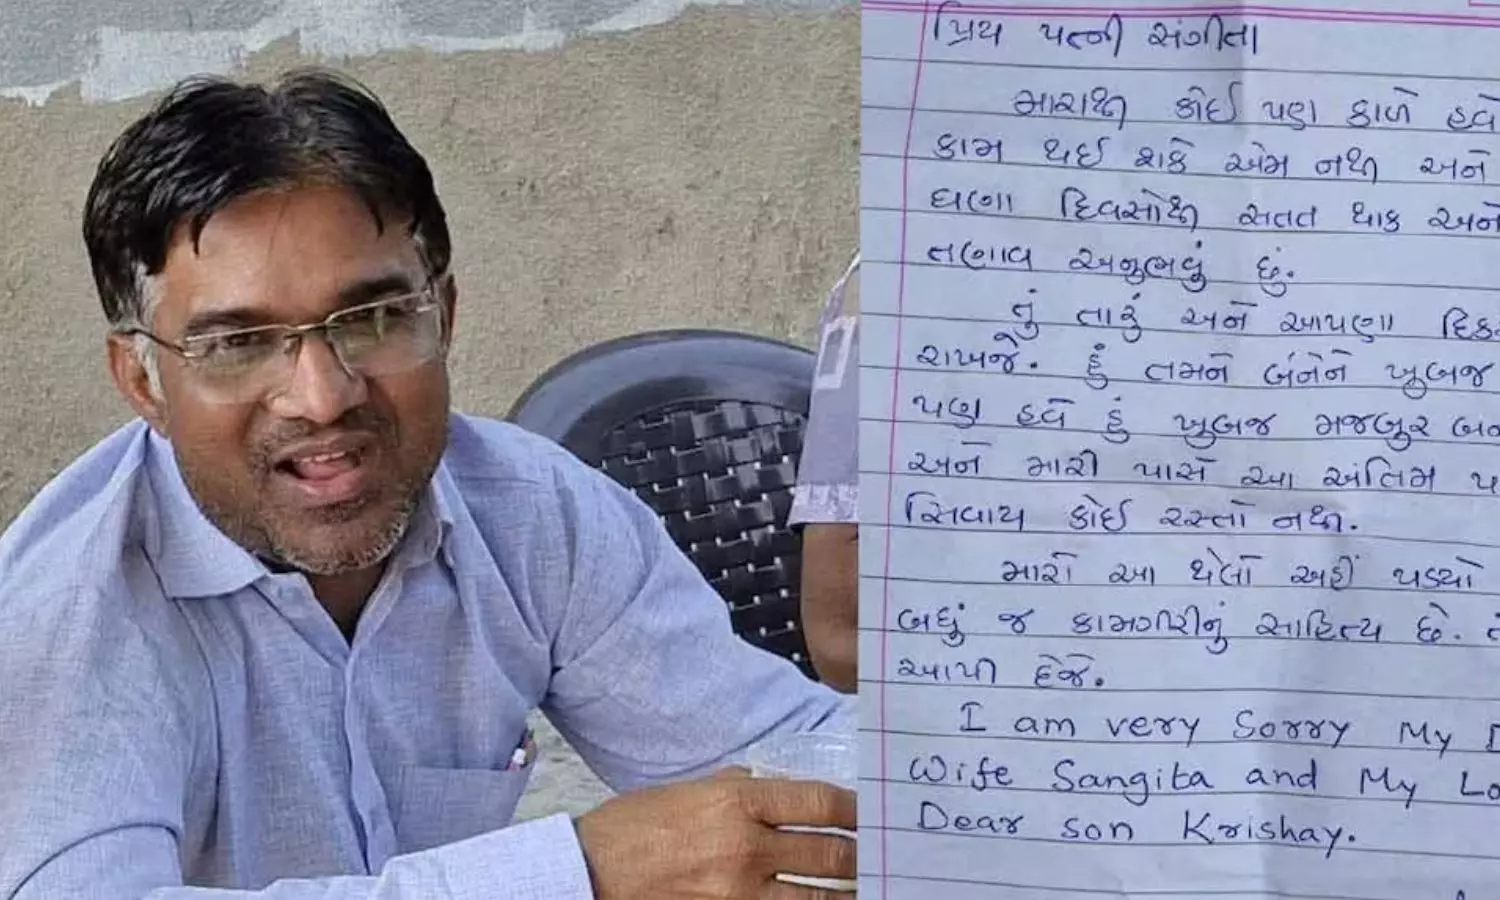 પ્રિય પત્ની સંગીતા
મારાથી કોઈ પણ કાળે હવે
કામ થઈ શકે એમ નથી અને
ઘણા દિવસોથી સતત થાક અને
તણાવ અનુભવું છું.
તું તારું અને આપણા
રાખજે. હું તમને બંનેને ખુબજ
પણ હવે હું ખુબજ મજબુર
અને મારી પાસે આ અંતિમ
સિવાય કોઈ રસ્તો નથી.
મારો આ થેલો અહીં પડ્યો
બધું જ કામગીરીનું સાહિત્ય છે.
આપી દેજે.
I am very Sorry My
Wife Sangita and My
Dear son Krishay.